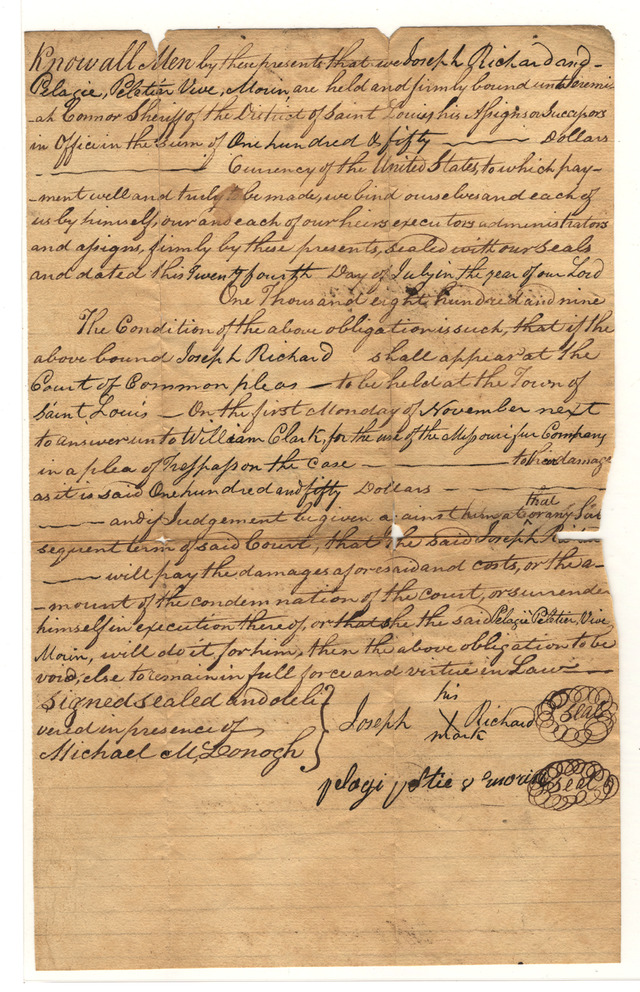 Know all Men by these presents that we Joseph Richard and -
Pelagie, Peletier Vive, Morin are held and firmly bound unto Jeremi
-ah Connor Sheriff of the District of Saint Louis, his Assigns or Successors
in Office in the Sum of One hundred & fifty ——— Dollars
——— Currency of the United States, to which pay-
-ment well and truly to be made, we bind ourselves and each of
us by himself, our and each of our heirs executors administrators
and assigns, firmly by these presents, sealed with our seals
and dated this Twenty fourth Day of July in the year of our Lord
One Thousand eight hundred and nine
The Condition of the above obligation is such, that if the
above bound Joseph Richard shall appear at the
Court of Common pleas — to be held at the Town of
Saint Louis — On the first Monday of November next
to answer unto William Clark, for the use of the Missouri fur Company
in a plea of Trespass on the case ——— to their damage
as it is said One hundred and fifty Dollars ———
——— and if Judgement be given against him at that or any Sub
sequent term of said Court, that the said Joseph
— will pay the damages aforesaid and costs, or the a-
-mount of the condemnation of the court, or surrender
himself in execution thereof, or that she the said Pelagie Peletier Vive,
Morin, will do it for him, then the above obligation to be
void, else to remain in full force and virtue in Law —
Signed sealed and deli
vered in presence of
Michael McDonogh
Joseph his X mark Richard Seal
pelagi v morin Seal